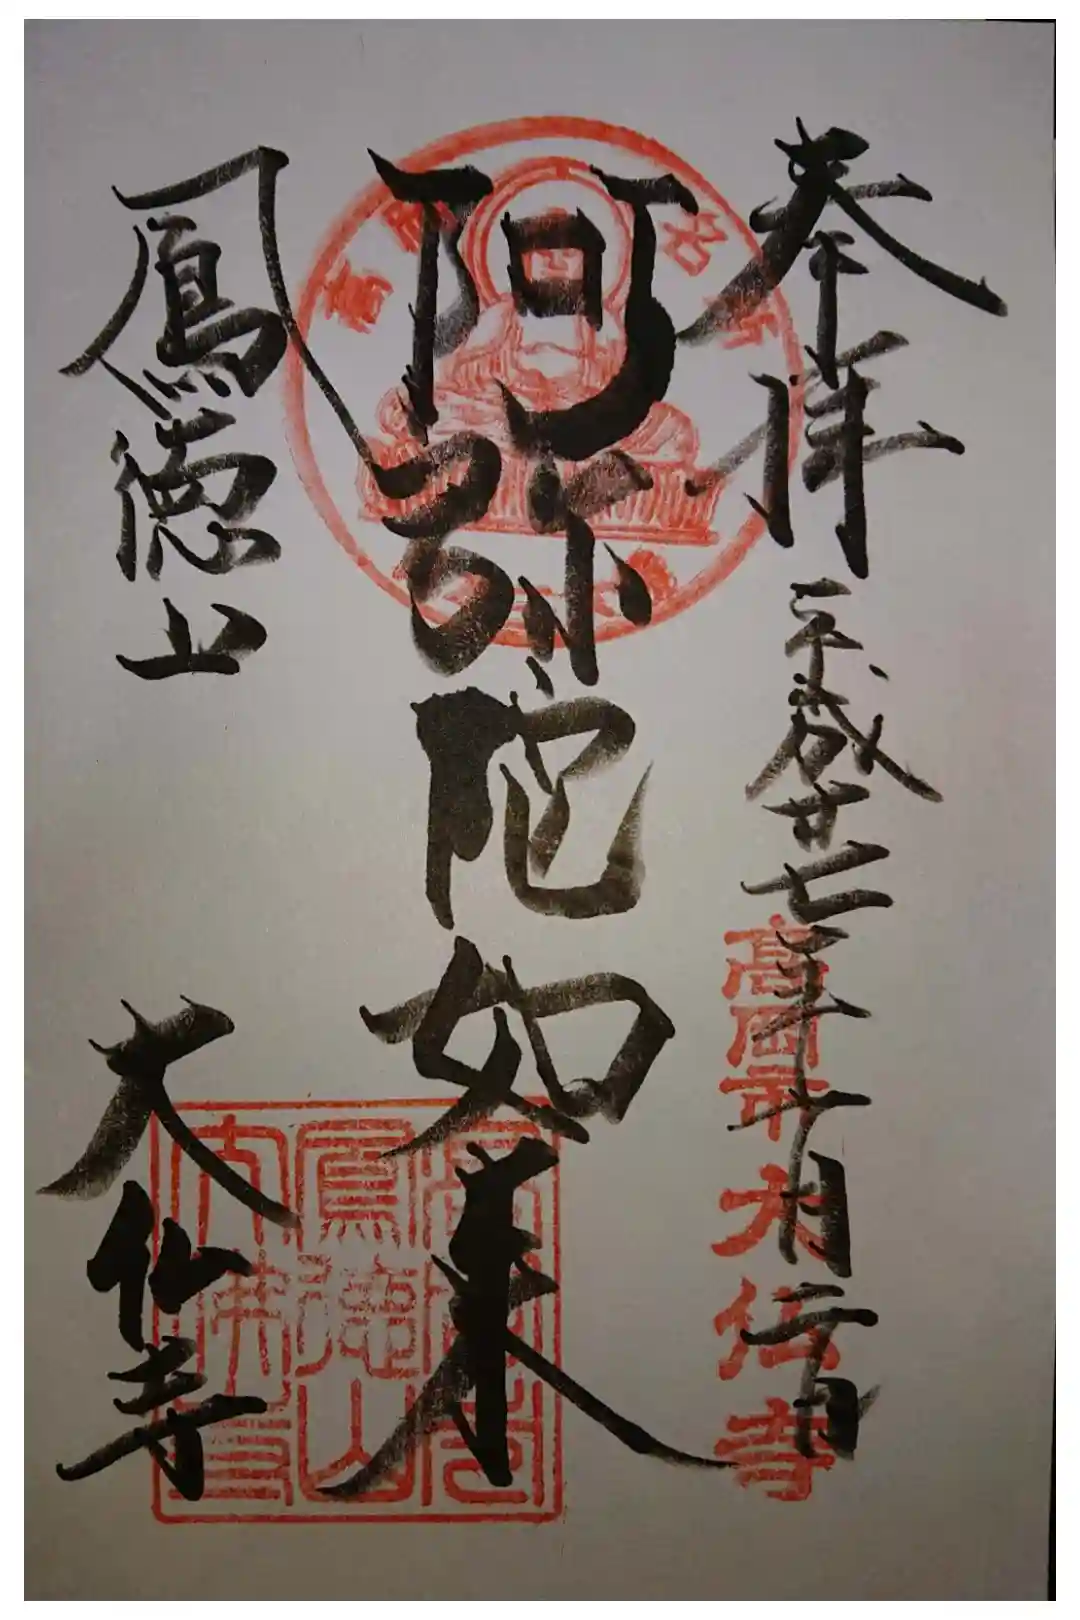 奉拝 平成廿七年十月二日
高岡市大仏寺
阿弥陀如来
鳳徳山
大仏寺
鳳徳山
大佛寺